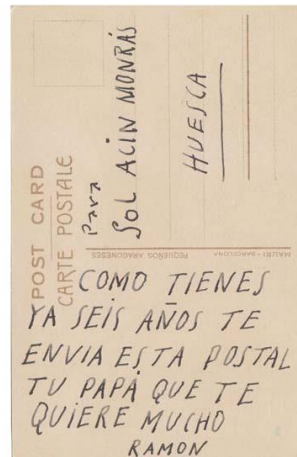 POST CARD
CARTE POSTALE
Para
SOL ACIN MONRÁS
HUESCA
PEQUEÑOS ARAGONESES
MAURI - BARCELONA
COMO TIENES
YA SEIS AÑOS TE
ENVIA ESTA POSTAL
TU PAPÁ QUE TE
QUIERE MUCHO
RAMON